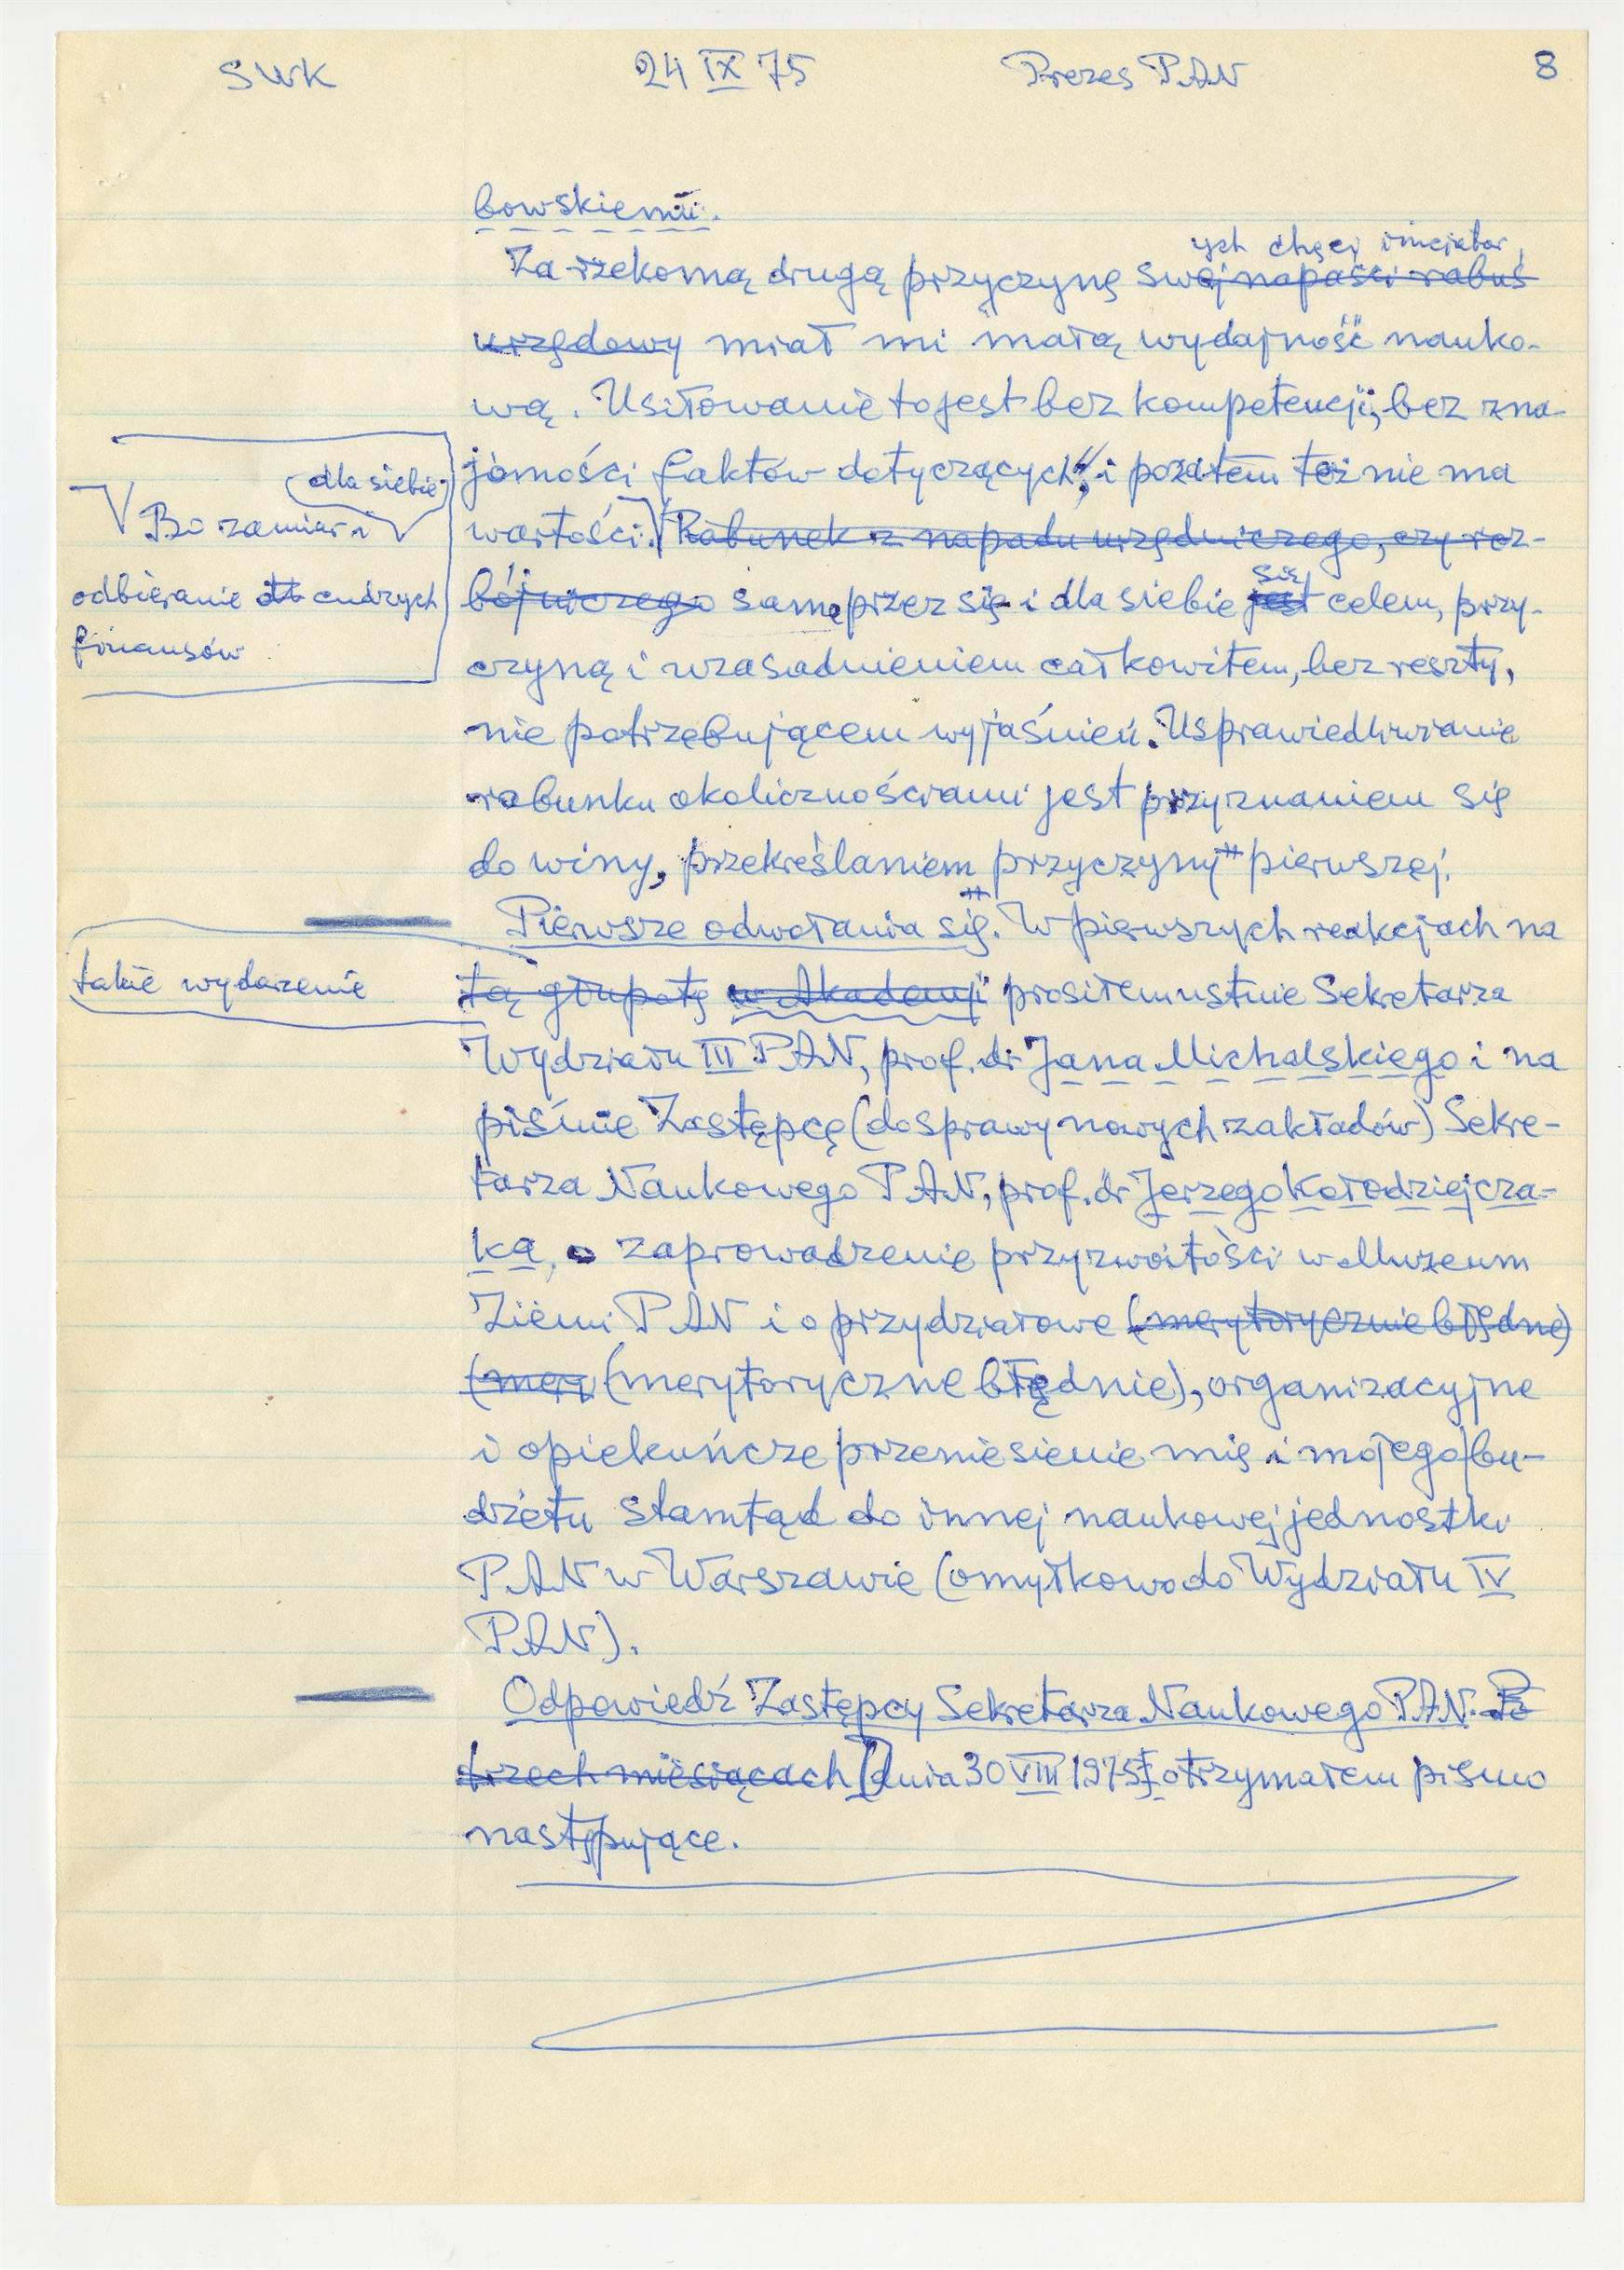 SWK 24 IX 75 Prezes PAN 8
bowskiemu.
ych chęci inicjator,
Za rzekomą drugą przyczynę swej napaści rabuś
urzędowy miał mi "małą wydajność nauko-
wą. Usiłowanie to jest bez kompetencji, bez zna-
jomości faktów dotyczących", i pozatem też nie ma
wartości. Rabunek z napadu urzędniczego, czy roz-
bójniczego same przez się i dla siebie jest celem, przy-
się
czyną i uzasadnieniem całkowitem, bez reszty,
nie potrzebującem wyjaśnień. Usprawiedliwianie
rabunku okolicznościami jest przyznaniem się
do winy, przekreślaniem "przyczyny" pierwszej.
dla siebie
Bo zamiar i
odbieranie cudzych
finansów
Pierwsze odwołania się. W pierwszych reakcjach na
takie wydarzenie
tą głupotę w Akademji prosiłem ustnie Sekretarza
Wydziału III PAN, prof. dr Jana Michalskiego i na
piśmie Zastępcę (do sprawy nowych zakładów) Sekre-
tarza Naukowego PAN, prof. dr Jerzego Kołodziejcza-
ka, o zaprowadzenie przyzwoitości w Muzeum
Ziemi PAN i o przydziałowe (merytorycznie błędne)
(mery (merytoryczne błędnie), organizacyjne
i opiekuńcze przeniesienie mię i mojego bu-
dżetu stamtąd do innej naukowej jednostki
PAN w Warszawie (omyłkowo do Wydziału IV
PAN).
Odpowiedź Zastępcy Sekretarza Naukowego PAN. Po
trzech miesiącach dnia 30 VIII 1975 otrzymałem pismo
następujące.